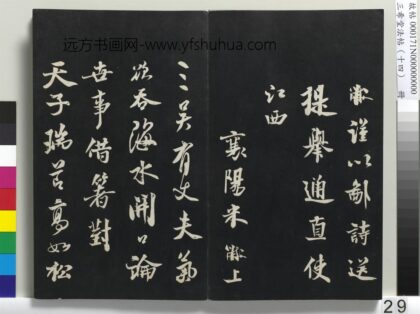 远方书画网-www.yfshuhua.com
故帖000171N000000000
三希堂法帖（十四） 冊
黻謹以鄙詩送
提舉通直使
江西
襄陽米黻上
三吳有丈夫氣
欲吞海水開口論
世事借箸對
天子瑞節高如松
29